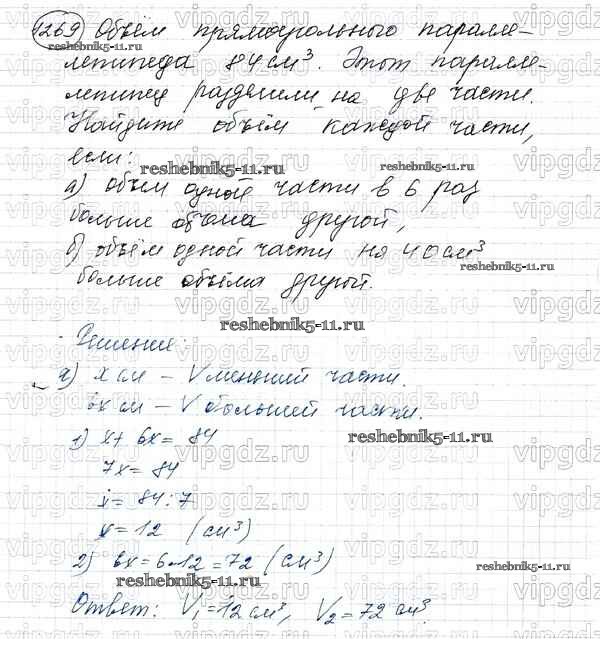 1269 Объём прямоугольного паралле-
лепипеда 84 см³. Этот паралле-
лепипед разделили на две части.
Найдите объём каждой части,
если:
а) объем одной части в 6 раз
больше объема другой,
б) объём одной части на 40 см³
больше объёма другой.
Решение:
а) x см – V меньшей части.
6x см – V большей части.
1) x + 6x = 84
7x = 84
x = 84 : 7
x = 12 (см³)
2) 6x = 6·12 = 72 (см³)
Ответ: V₁ = 12 см³, V₂ = 72 см³.
reshebnik5-11.ru
vipgdz.ru